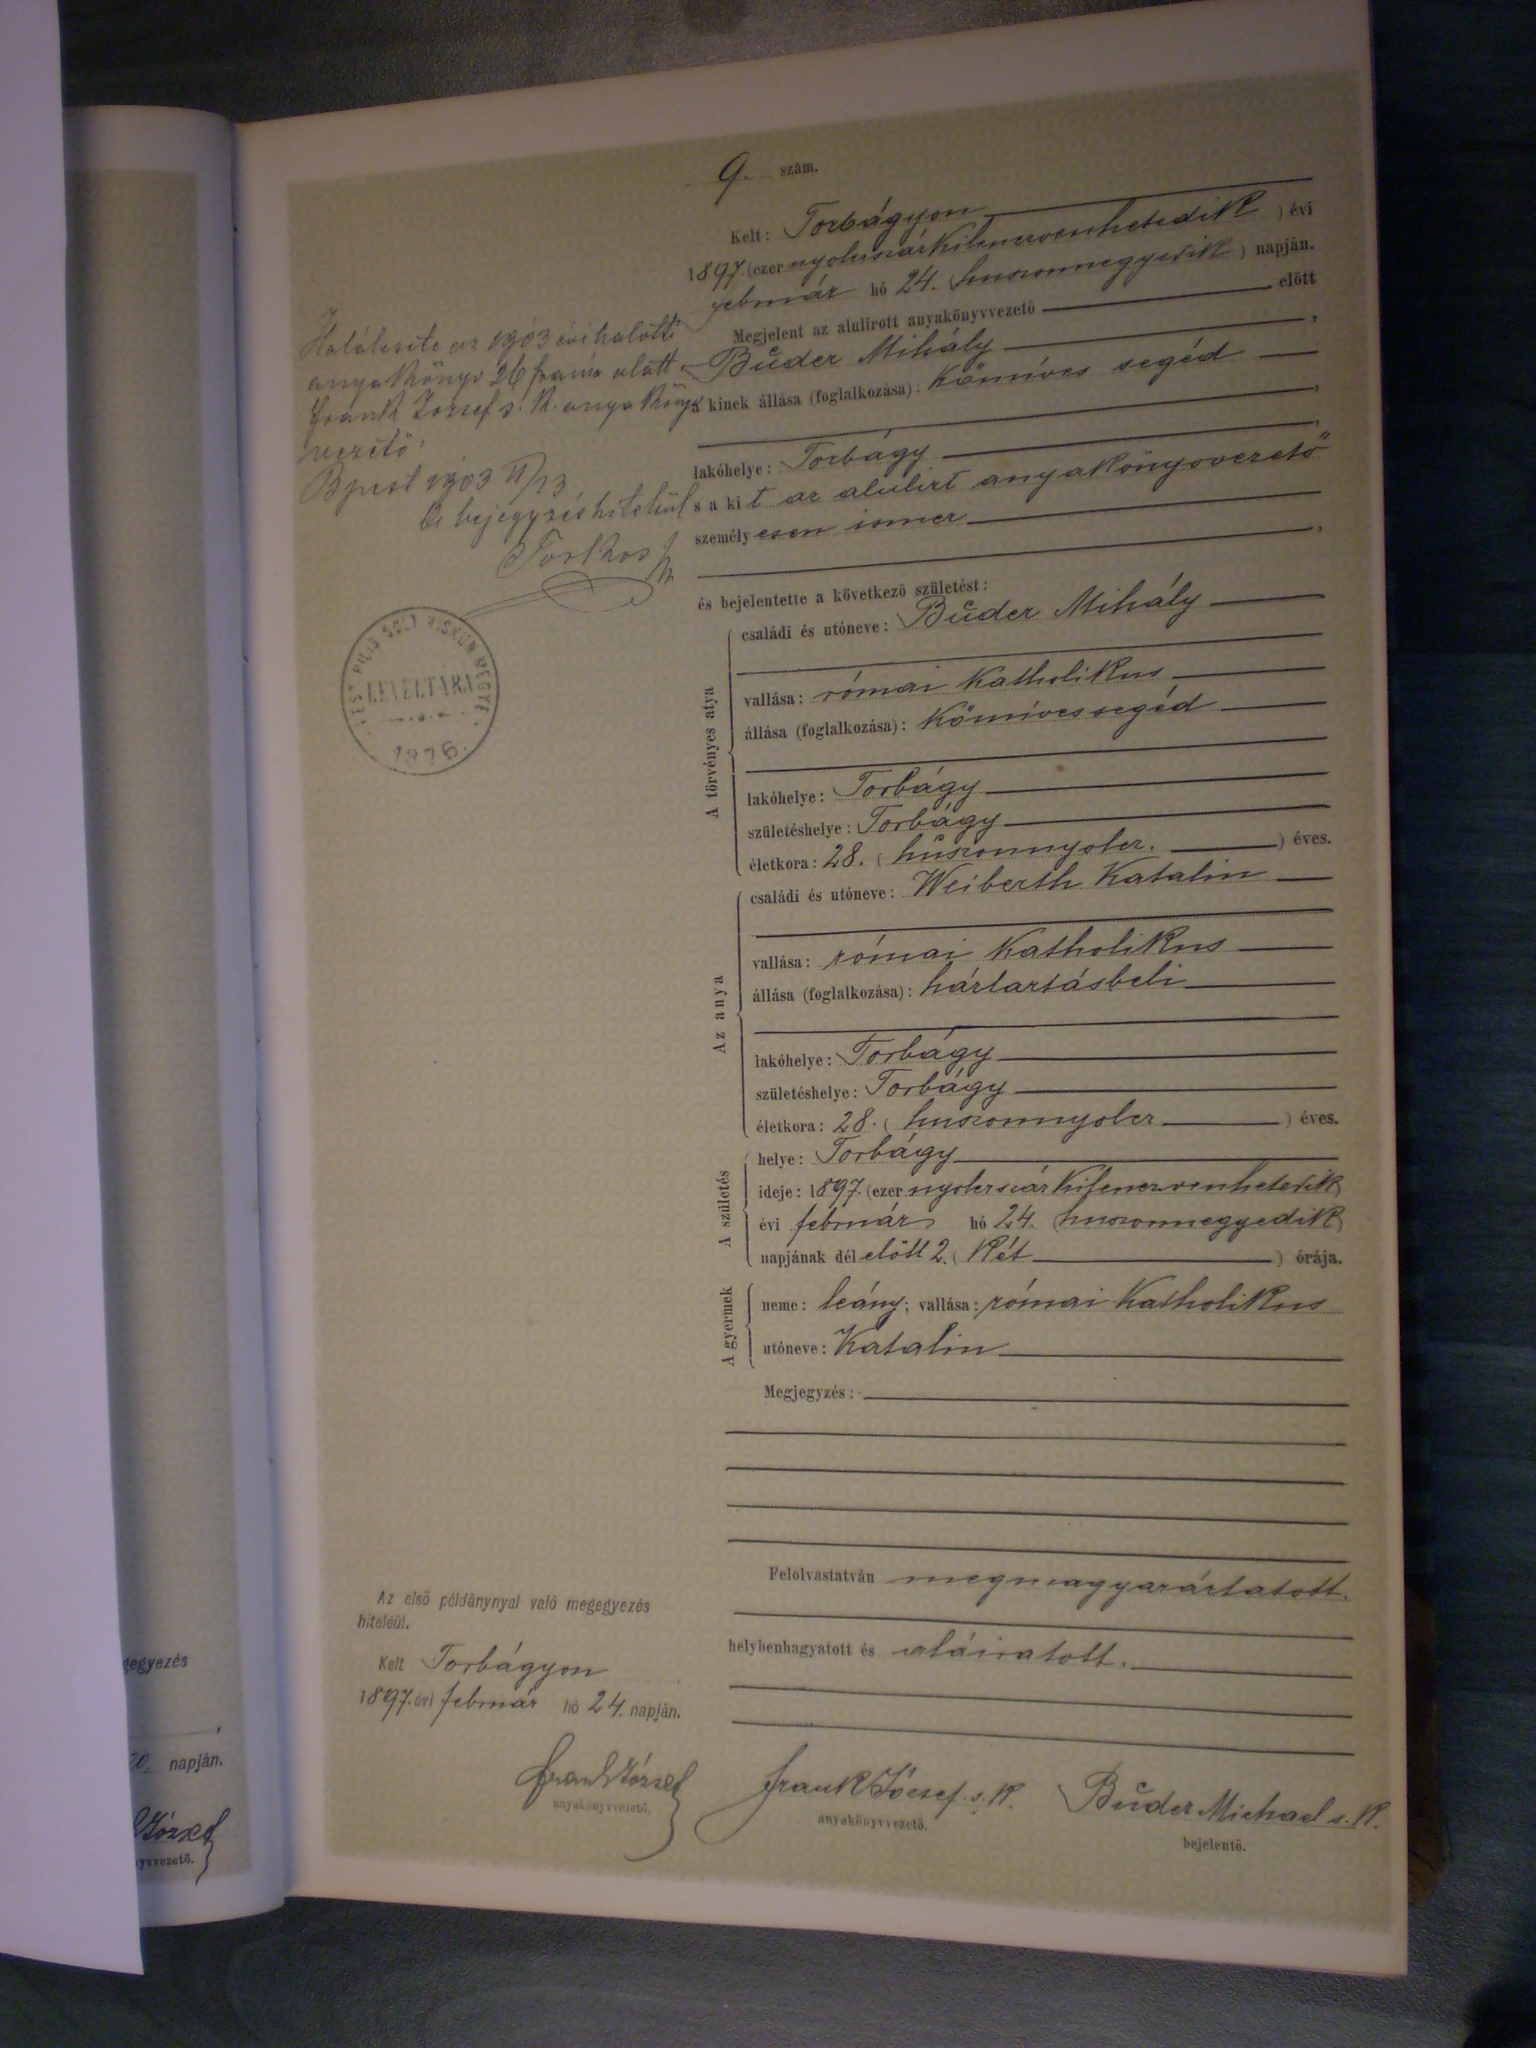 9. szám.
Kelt: Torbágyon
1897. (ezer nyolcszázkilencvenhetedik) évi
február hó 24. (huszonnegyedik) napján.
Megjelent az alulirott anyakönyvvezető előtt
Buder Mihály,
a kinek állása (foglalkozása): Kőmíves segéd,
lakóhelye: Torbágy,
s a kit az alulirt anyakönyvvezető
személyesen ismer,
és bejelentette a következő születést:
A törvényes atya
családi és utóneve: Buder Mihály
vallása: római katholikus
állása (foglalkozása): Kőmívessegéd
lakóhelye: Torbágy
születéshelye: Torbágy
életkora: 28. (huszonnyolcz.) éves.
Az anya
családi és utóneve: Weiberth Katalin
vallása: római katholikus
állása (foglalkozása): háztartásbeli
lakóhelye: Torbágy
születéshelye: Torbágy
életkora: 28. (huszonnyolcz) éves.
A születés
helye: Torbágy
ideje: 1897. (ezer nyolcszázkilenczvenhetedik)
évi február hó 24. (huszonnegyedik)
napjának dél előtt 2. (két) órája.
A gyermek
neme: leány; vallása: római katholikus
utóneve: Katalin
Megjegyzés:
Felolvastatván megmagyaráztatott.
helybenhagyatott és aláiratott.
Frank József s. k.
anyakönyvvezető.
Buder Michael s. k.
bejelentő.
Halálesete az 1903 évi halotti
anyakönyv 26 szám alatt
Frank József s. k. anyakönyv
vezető
Bpest 1903 II/13
A bejegyzés hiteléül
PEST PILIS SOLT KISKUN MEGYE
LEVÉLTÁRA
1876.
Az első példánynyal való megegyezés
hiteléül.
Kelt Torbágyon
1897. évi február hó 24. napján.
Frank József
anyakönyvvezető.
gegyezés
20. napján.
József
yvvezető.